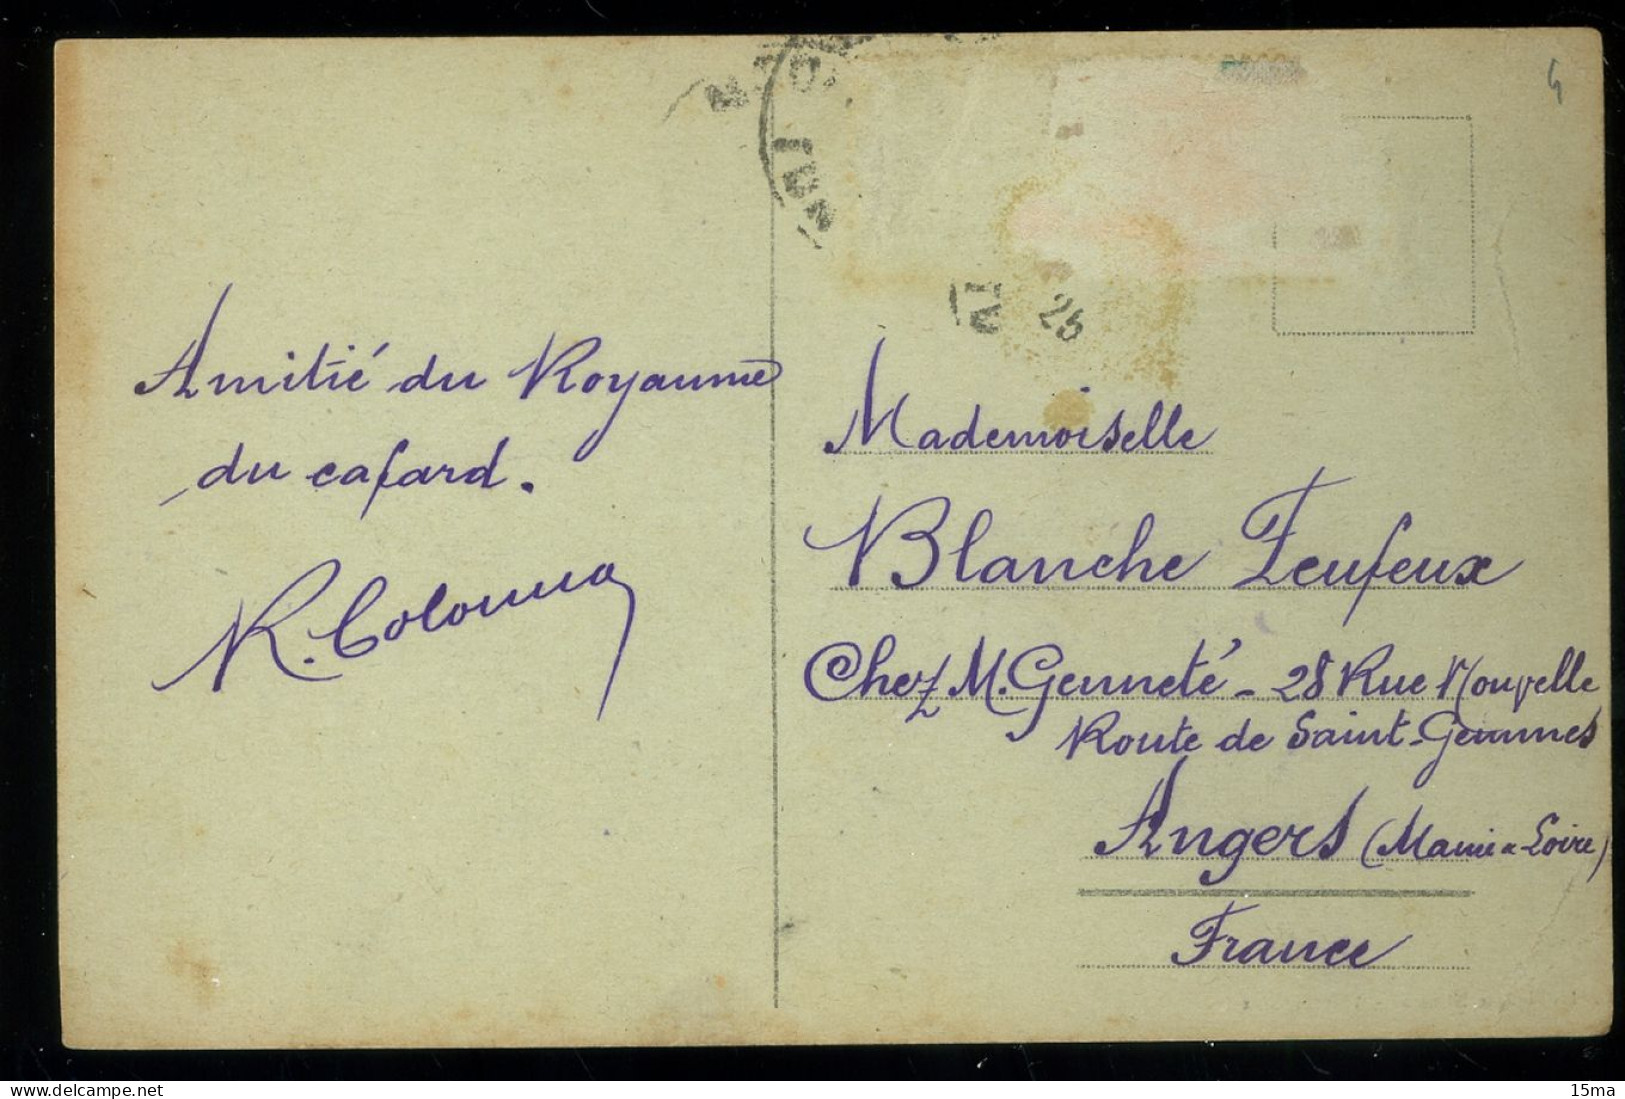 Amitié du Royaume
du cafard.
R. Colonna
25
Mademoiselle
Blanche Feufeux
Chez M. Genneté - 28 Rue Nouvelle
Route de Saint-Gemmes
Angers (Maine & Loire)
France
www.delcampe.net
15ma